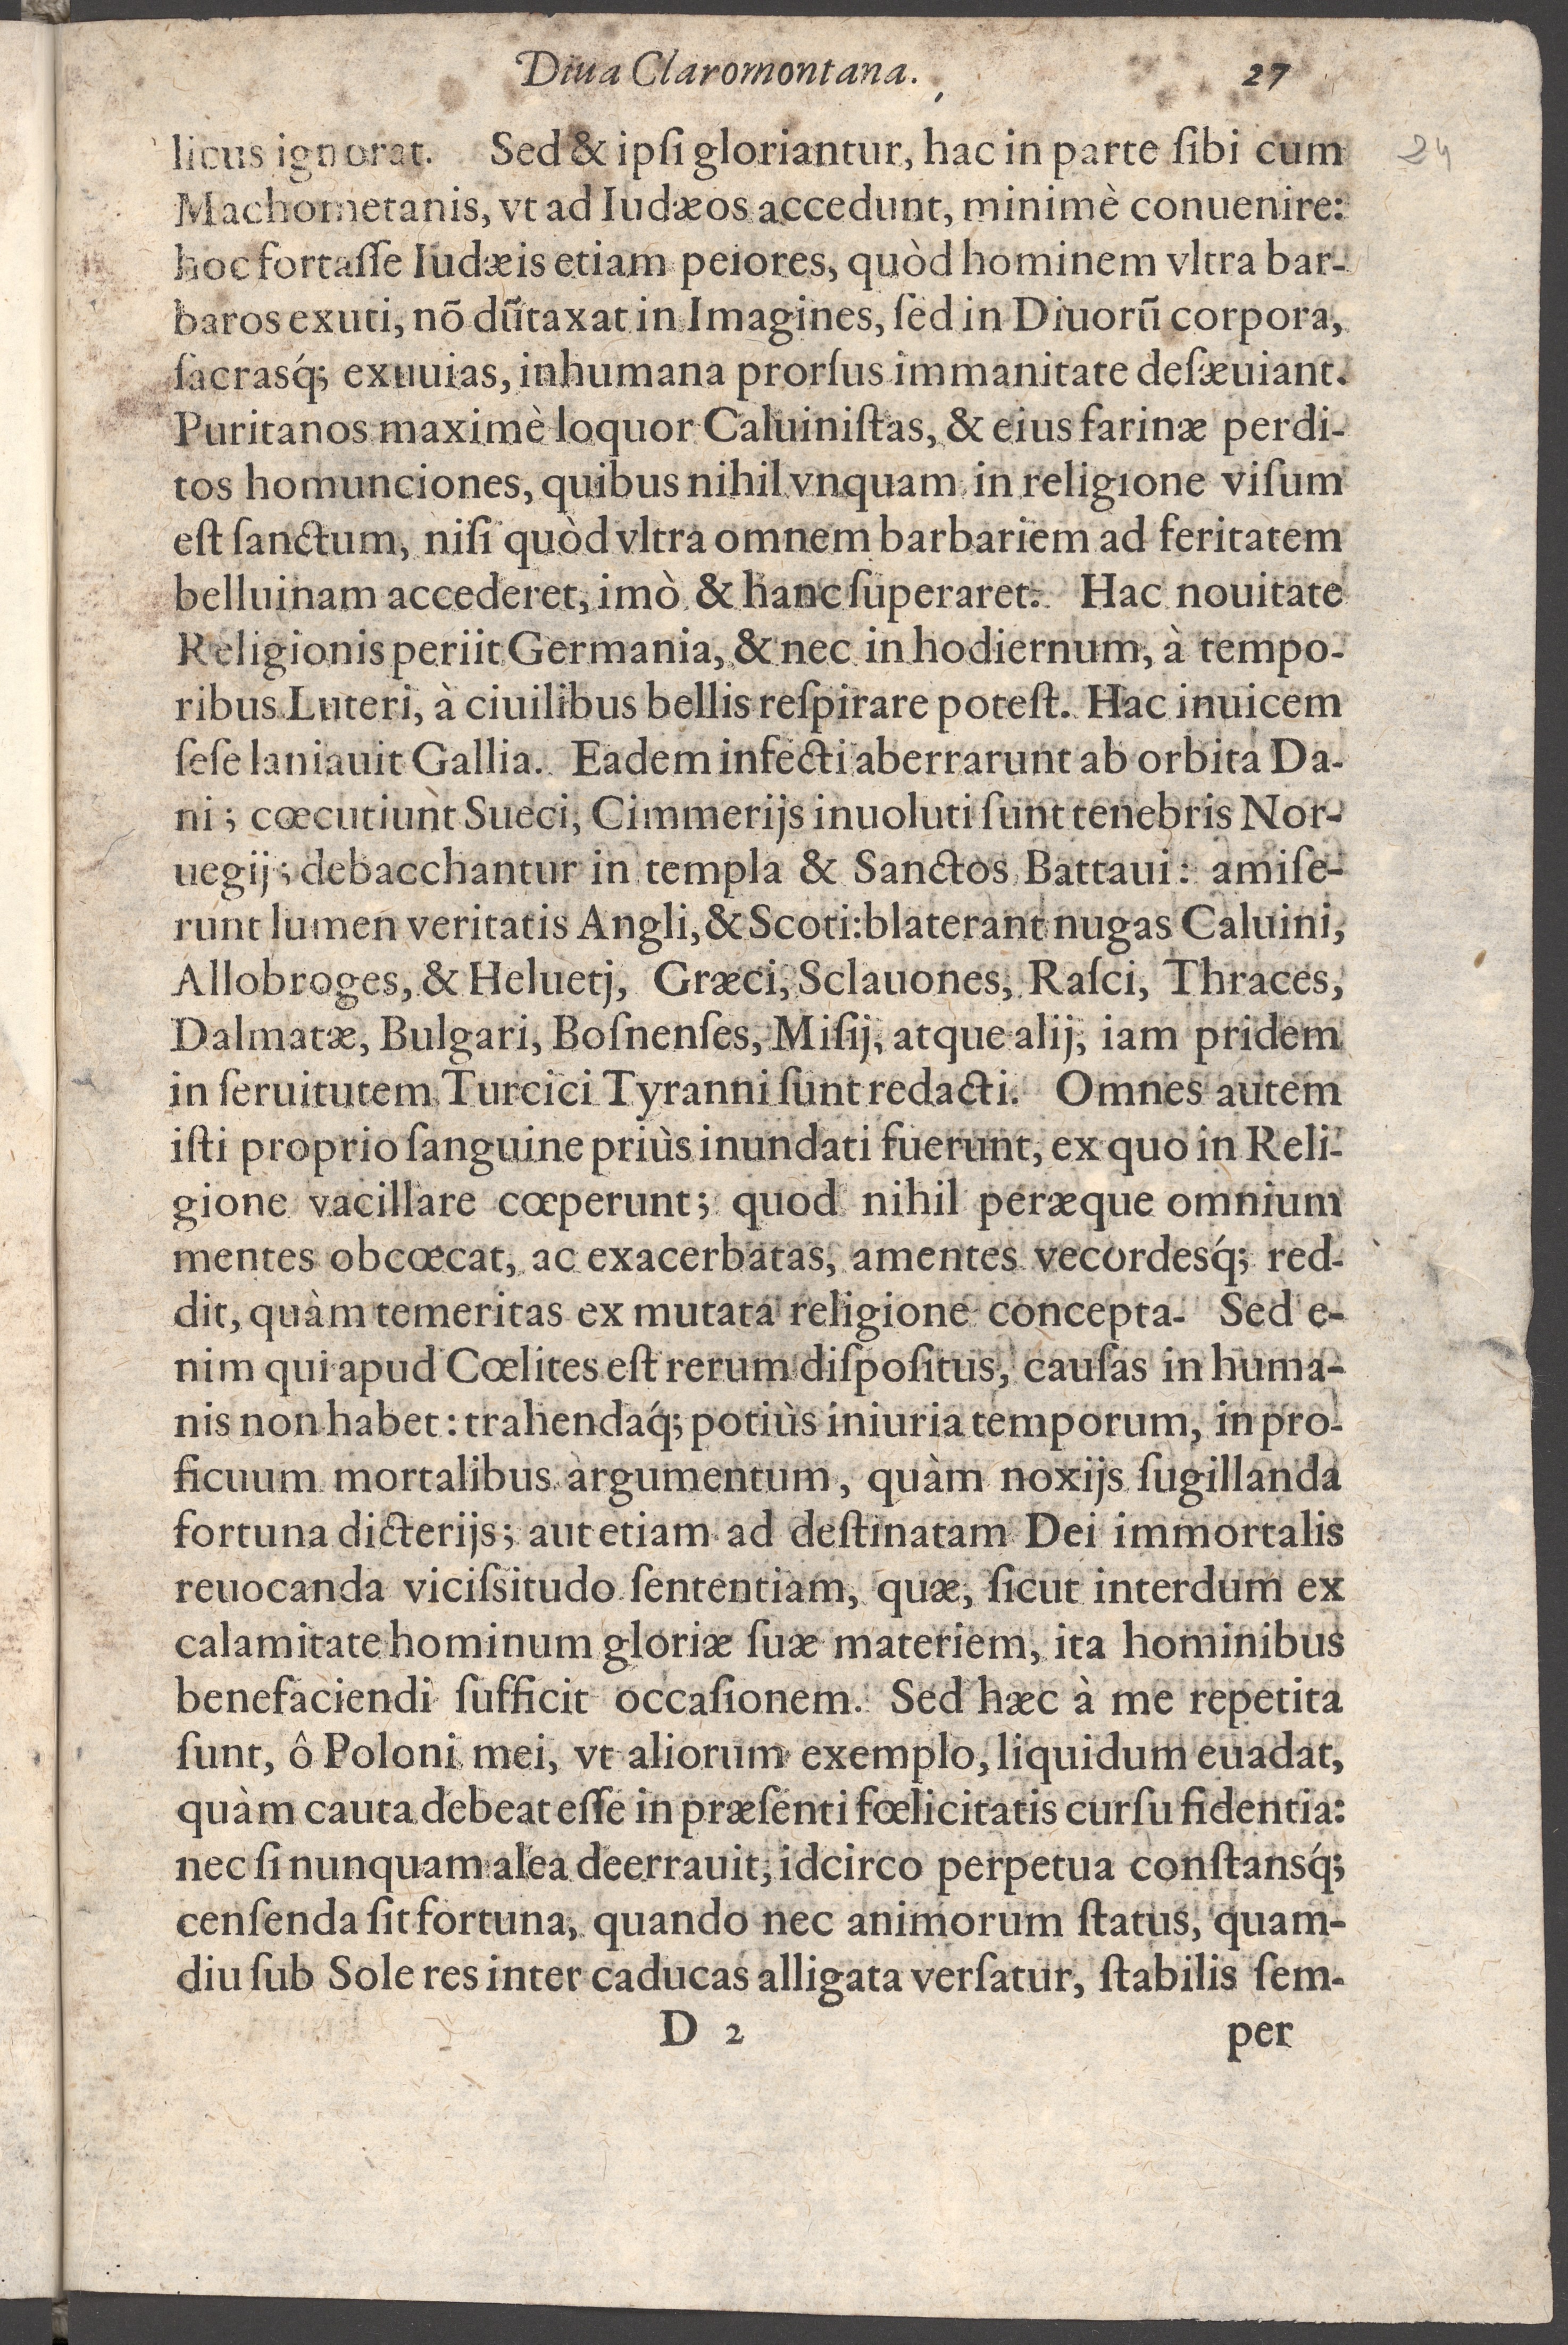 Diua Claromontana. 27
licus ignorat. Sed & ipſi gloriantur, hac in parte ſibi cum
24
Machometanis, vt ad Iudæos accedunt, minimè conuenire:
hoc fortaſſe Iudæis etiam peiores, quòd hominem vltra bar-
baros exuti, nõ dũtaxat in Imagines, ſed in Diuorũ corpora,
ſacrasq́; exuuias, inhumana prorſus immanitate deſæuiant.
Puritanos maximè loquor Caluiniſtas, & eius farinæ perdi-
tos homunciones, quibus nihil vnquam in religione viſum
eſt ſanctum, niſi quòd vltra omnem barbariem ad feritatem
belluinam accederet, imò & hanc ſuperaret. Hac nouitate
Religionis periit Germania, & nec in hodiernum, à tempo-
ribus Luteri, à ciuilibus bellis reſpirare poteſt. Hac inuicem
ſeſe laniauit Gallia. Eadem infecti aberrarunt ab orbita Da-
ni; cœcutiunt Sueci, Cimmerijs inuoluti ſunt tenebris Nor-
uegij; debacchantur in templa & Sanctos Battaui: amiſe-
runt lumen veritatis Angli, & Scoti: blaterant nugas Caluini,
Allobroges, & Heluetj, Græci, Sclauones, Raſci, Thraces,
Dalmatæ, Bulgari, Boſnenſes, Miſij, atque alij, iam pridem
in ſeruitutem Turcici Tyranni ſunt redacti. Omnes autem
iſti proprio ſanguine priùs inundati fuerunt, ex quo in Reli-
gione vacillare cœperunt; quod nihil peræque omnium
mentes obcœcat, ac exacerbatas, amentes vecordesq́; red-
dit, quàm temeritas ex mutata religione concepta. Sed e-
nim qui apud Cœlites eſt rerum diſpoſitus, cauſas in huma-
nis non habet: trahendaq́; potiùs iniuria temporum, in pro-
ficuum mortalibus argumentum, quàm noxijs ſugillanda
fortuna dicterijs; aut etiam ad deſtinatam Dei immortalis
reuocanda viciſsitudo ſententiam, quæ, ſicut interdum ex
calamitate hominum gloriæ ſuæ materiem, ita hominibus
benefaciendi ſufficit occaſionem. Sed hæc à me repetita
ſunt, ô Poloni mei, vt aliorum exemplo, liquidum euadat,
quàm cauta debeat eſſe in præſenti fœlicitatis curſu fidentia:
nec ſi nunquam alea deerrauit, idcirco perpetua conſtansq́;
cenſenda ſit fortuna, quando nec animorum ſtatus, quam-
diu ſub Sole res inter caducas alligata verſatur, ſtabilis ſem-
D 2 per